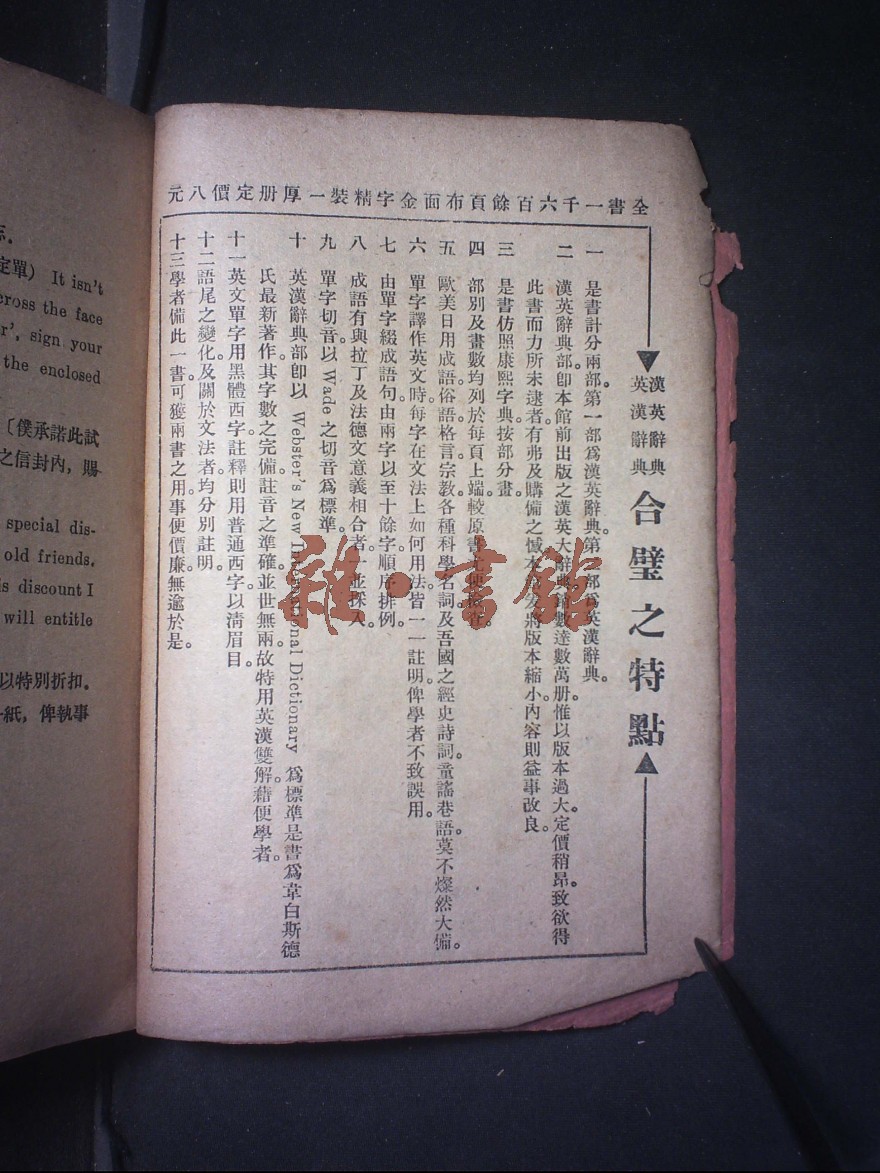 全書一千六百餘頁布面金字精裝一厚册定價八元
漢英辭典
英漢辭典
合璧之特點
一 是書計分兩部。第一部爲漢英辭典。第二部爲英漢辭典。
二 漢英辭典部。卽本館前出版之漢英大辭典銷數達數萬册。惟以版本過大。定價稍昂。致欲得
此書而力所未逮者。有弗及購備之憾。本館爰將版本縮小。內容則益事改良。
三 是書仿照康熙字典按部分畫。
四 部別及畫數均列於每頁上端。較原書尤便檢查。
五 歐美日用成語。俗語格言。宗教。各種科學名詞。及吾國之經史詩詞。童謠巷語。莫不燦然大備。
六 單字譯作英文時。每字在文法上如何用法。皆一一註明。俾學者不致誤用。
七 由單字綴成語句。由兩字以至十餘字。順序排例。
八 成語有與拉丁及法德文意義相合者。一並採入。
九 單字切音。以 Wade 之切音爲標準。
十 英漢辭典部卽以 Webster's New International Dictionary 爲標準。是書爲韋白斯德
氏最新著作。其字數之完備。註音之準確。並世無兩。故特用英漢雙解。藉便學者。
十一 英文單字用黑體西字。註釋則用普通西字。以淸眉目。
十二 語尾之變化。及關於文法者。均分別註明。
十三 學者備此一書。可獲兩書之用。事便價廉。無逾於是。
志.
定單) It isn't
cross the face
r', sign your
the enclosed
〔僕承諾此試
之信封內, 賜
special dis-
old friends.
is discount I
will entitle
以特別折扣.
紙, 俾執事
雜·書館